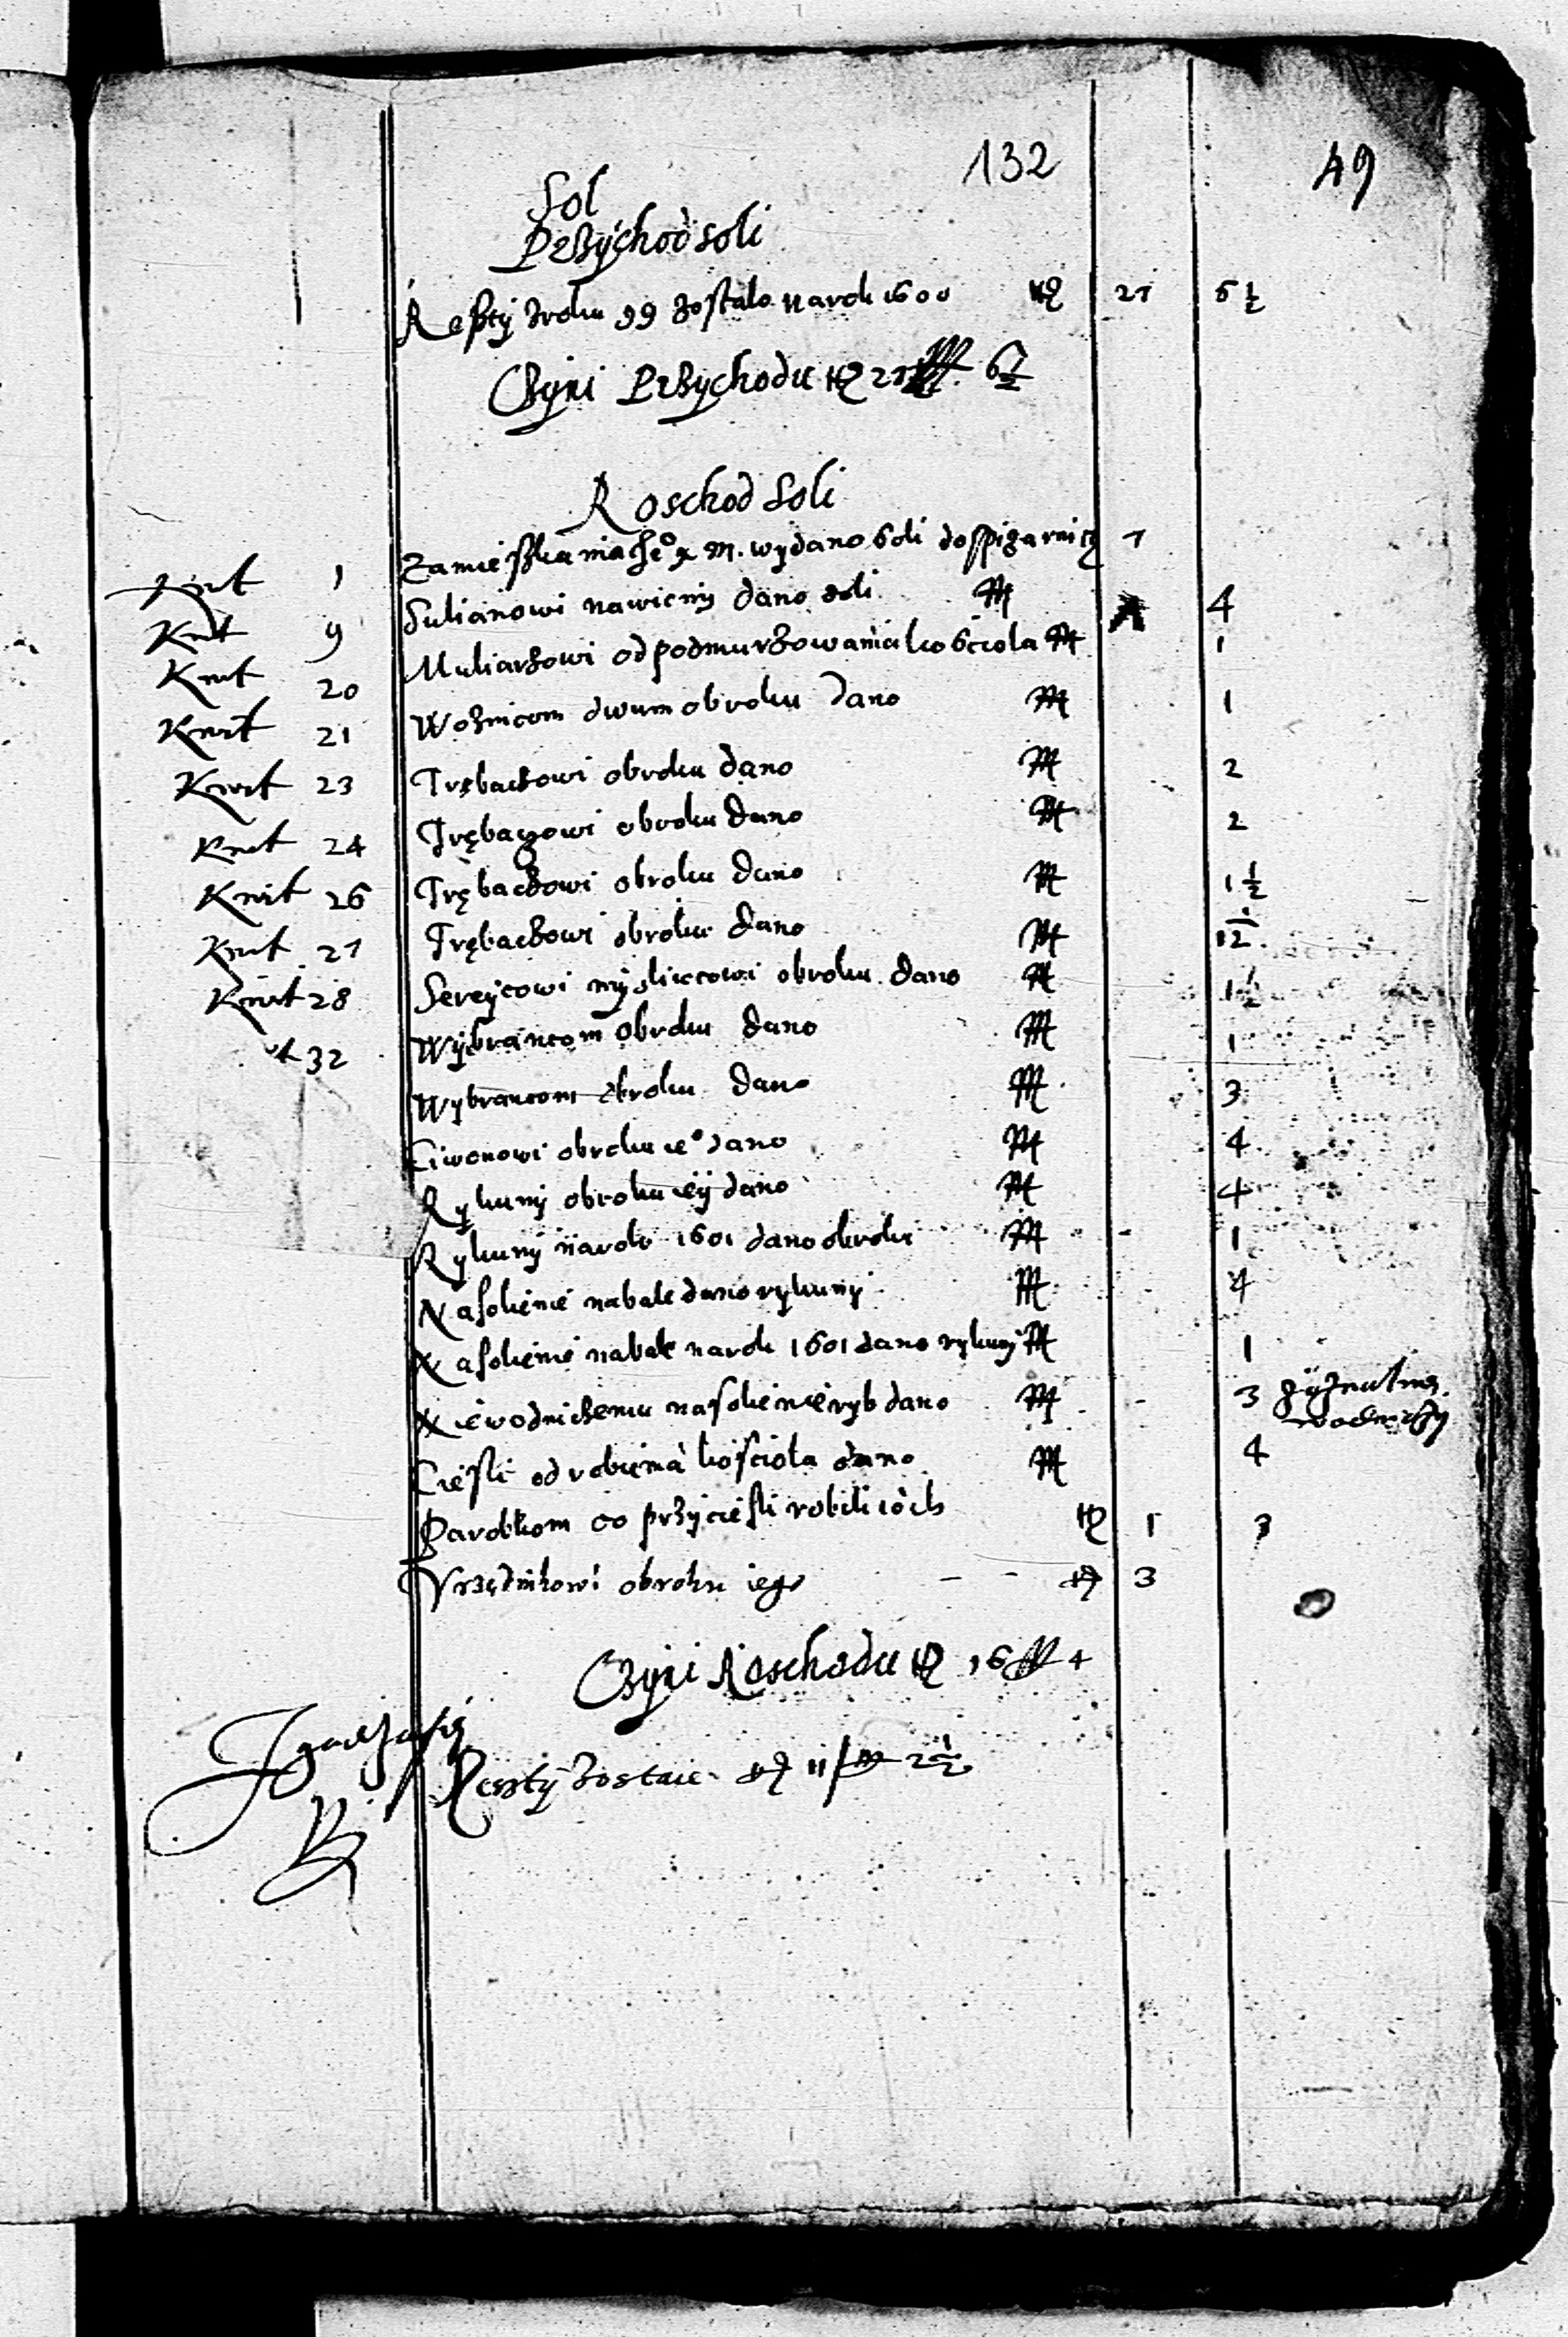 132 49
Sol
Przychod soli
Reszty z roku 99 zostalo na rok 1600 27 6½
Czyni Przychodu 27 6½
Roschod Soli
Kwit 1 Zamieszkania Je° x M. wydano Soli do spizarniey 7
Kwit 9 Sulianowi nawicny dano soli 4
Kwit 20 Muliarzowi od podmurzowania kosciola 1
Kwit 21 Woznicom dwum obroku dano 1
Kwit 23 Trębaczowi obroku dano 2
Kwit 24 Trębaczowi obroku dano 2
Kwit 26 Trębaczowi obroku dano 1½
Kwit 27 Trębaczowi obroku dano 1½
Kwit 28 Sereycowi mysliwcowi obroku dano 1½
t 32 Wybrancom obroku dano 1
Wybrancom obroku dano 3
Ciwonowi obroku ie° dano 4
Rykuny obroku iey dano 4
Rykuny na rok 1601 dano obroku 1
Na solienie nabale dano rykuny 4
Na solienie nabale na rok 1601 dano rykuny 1
Niewodniczemu na solienie ryb dano 3
Ciesli od robienia kosciola dano 4
Parobkom co przy ciesli robili ioch 1 3
Vrzędnikowi obroku iego 3
Czyni Roschodu 16 4
Reszty zostaie 11 2½